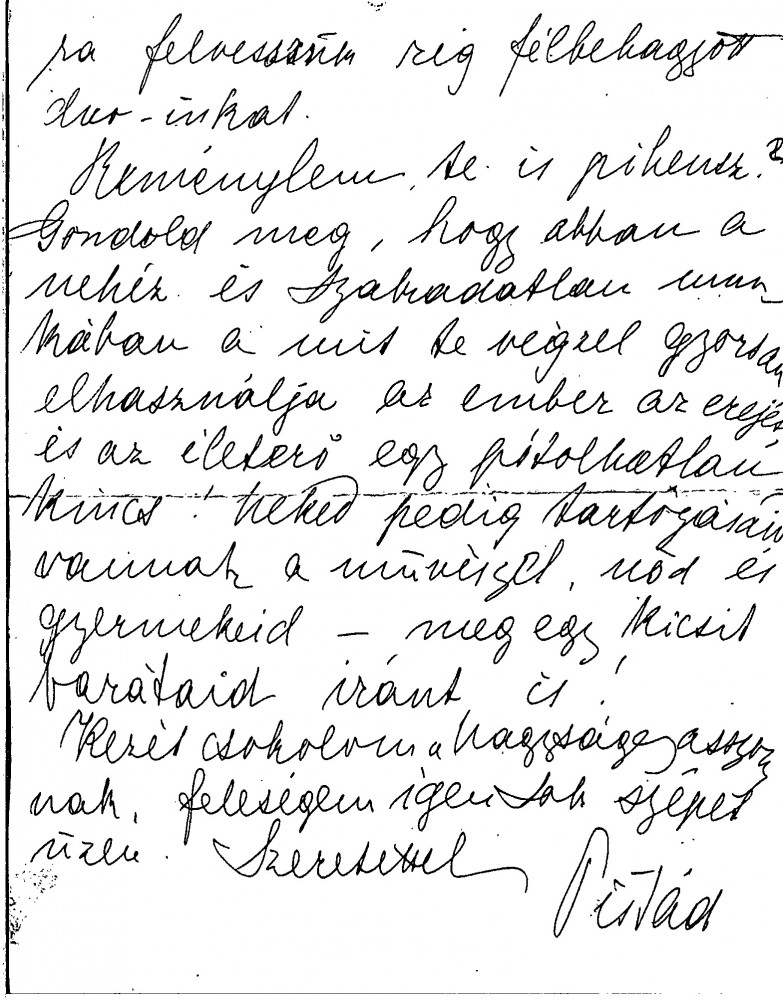 ra felvesszük rég félbehagyott
duo-inkat.
Reménylem, te is pihensz.
Gondold meg, hogy abban a
nehéz és szabadatlan mun
kában a mit te végzel gyorsan
elhasználja az ember az erejét
és az életerő egy pótolhatlan
kincs! neked pedig tartozásaid
vannak a művészet, nőd és
gyermekeid – meg egy kicsit
barátaid iránt is!
Kezét csokolom a nagyságos asszony
nak, feleségem igen sok szépet
üzen. Szeretettel
Pistád